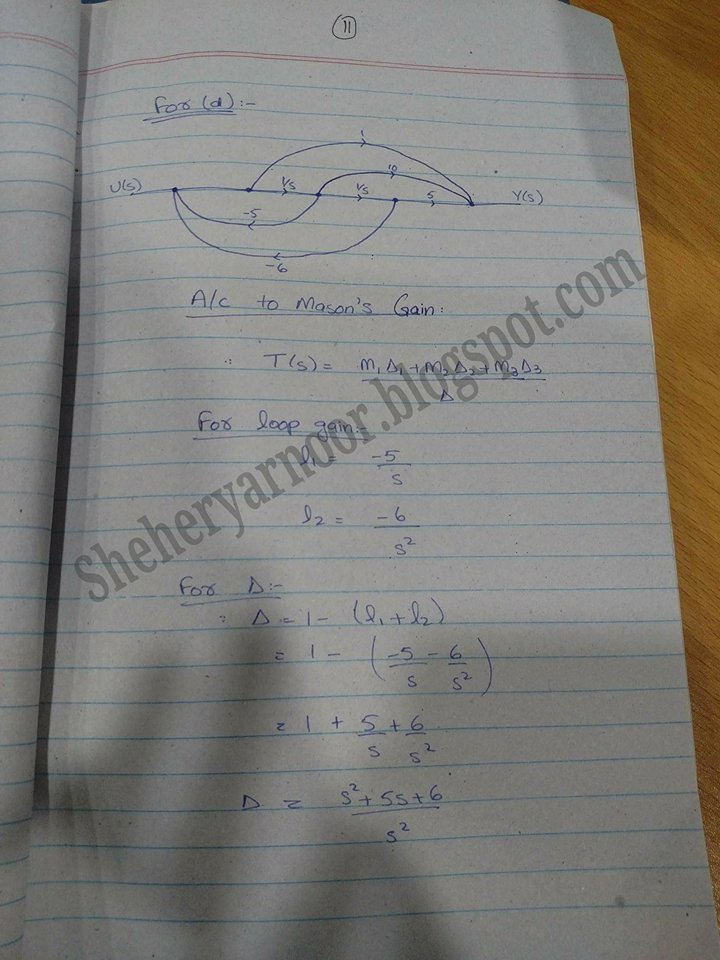 11
For (d):-
1
10
U(s) 1/s 1/s 5 Y(s)
-5
-6
A/c to Mason's Gain:
∴ T(s) = M₁Δ₁+M₂Δ₂+M₃Δ₃
Δ
For loop gain:-
l₁ = -5
s
l₂ = -6
s²
For Δ:-
∴ Δ = 1 - (l₁ + l₂)
= 1 - (-5/s - 6/s²)
= 1 + 5/s + 6/s²
Δ = s²+5s+6
s²
Sheheryarnoor.blogspot.com